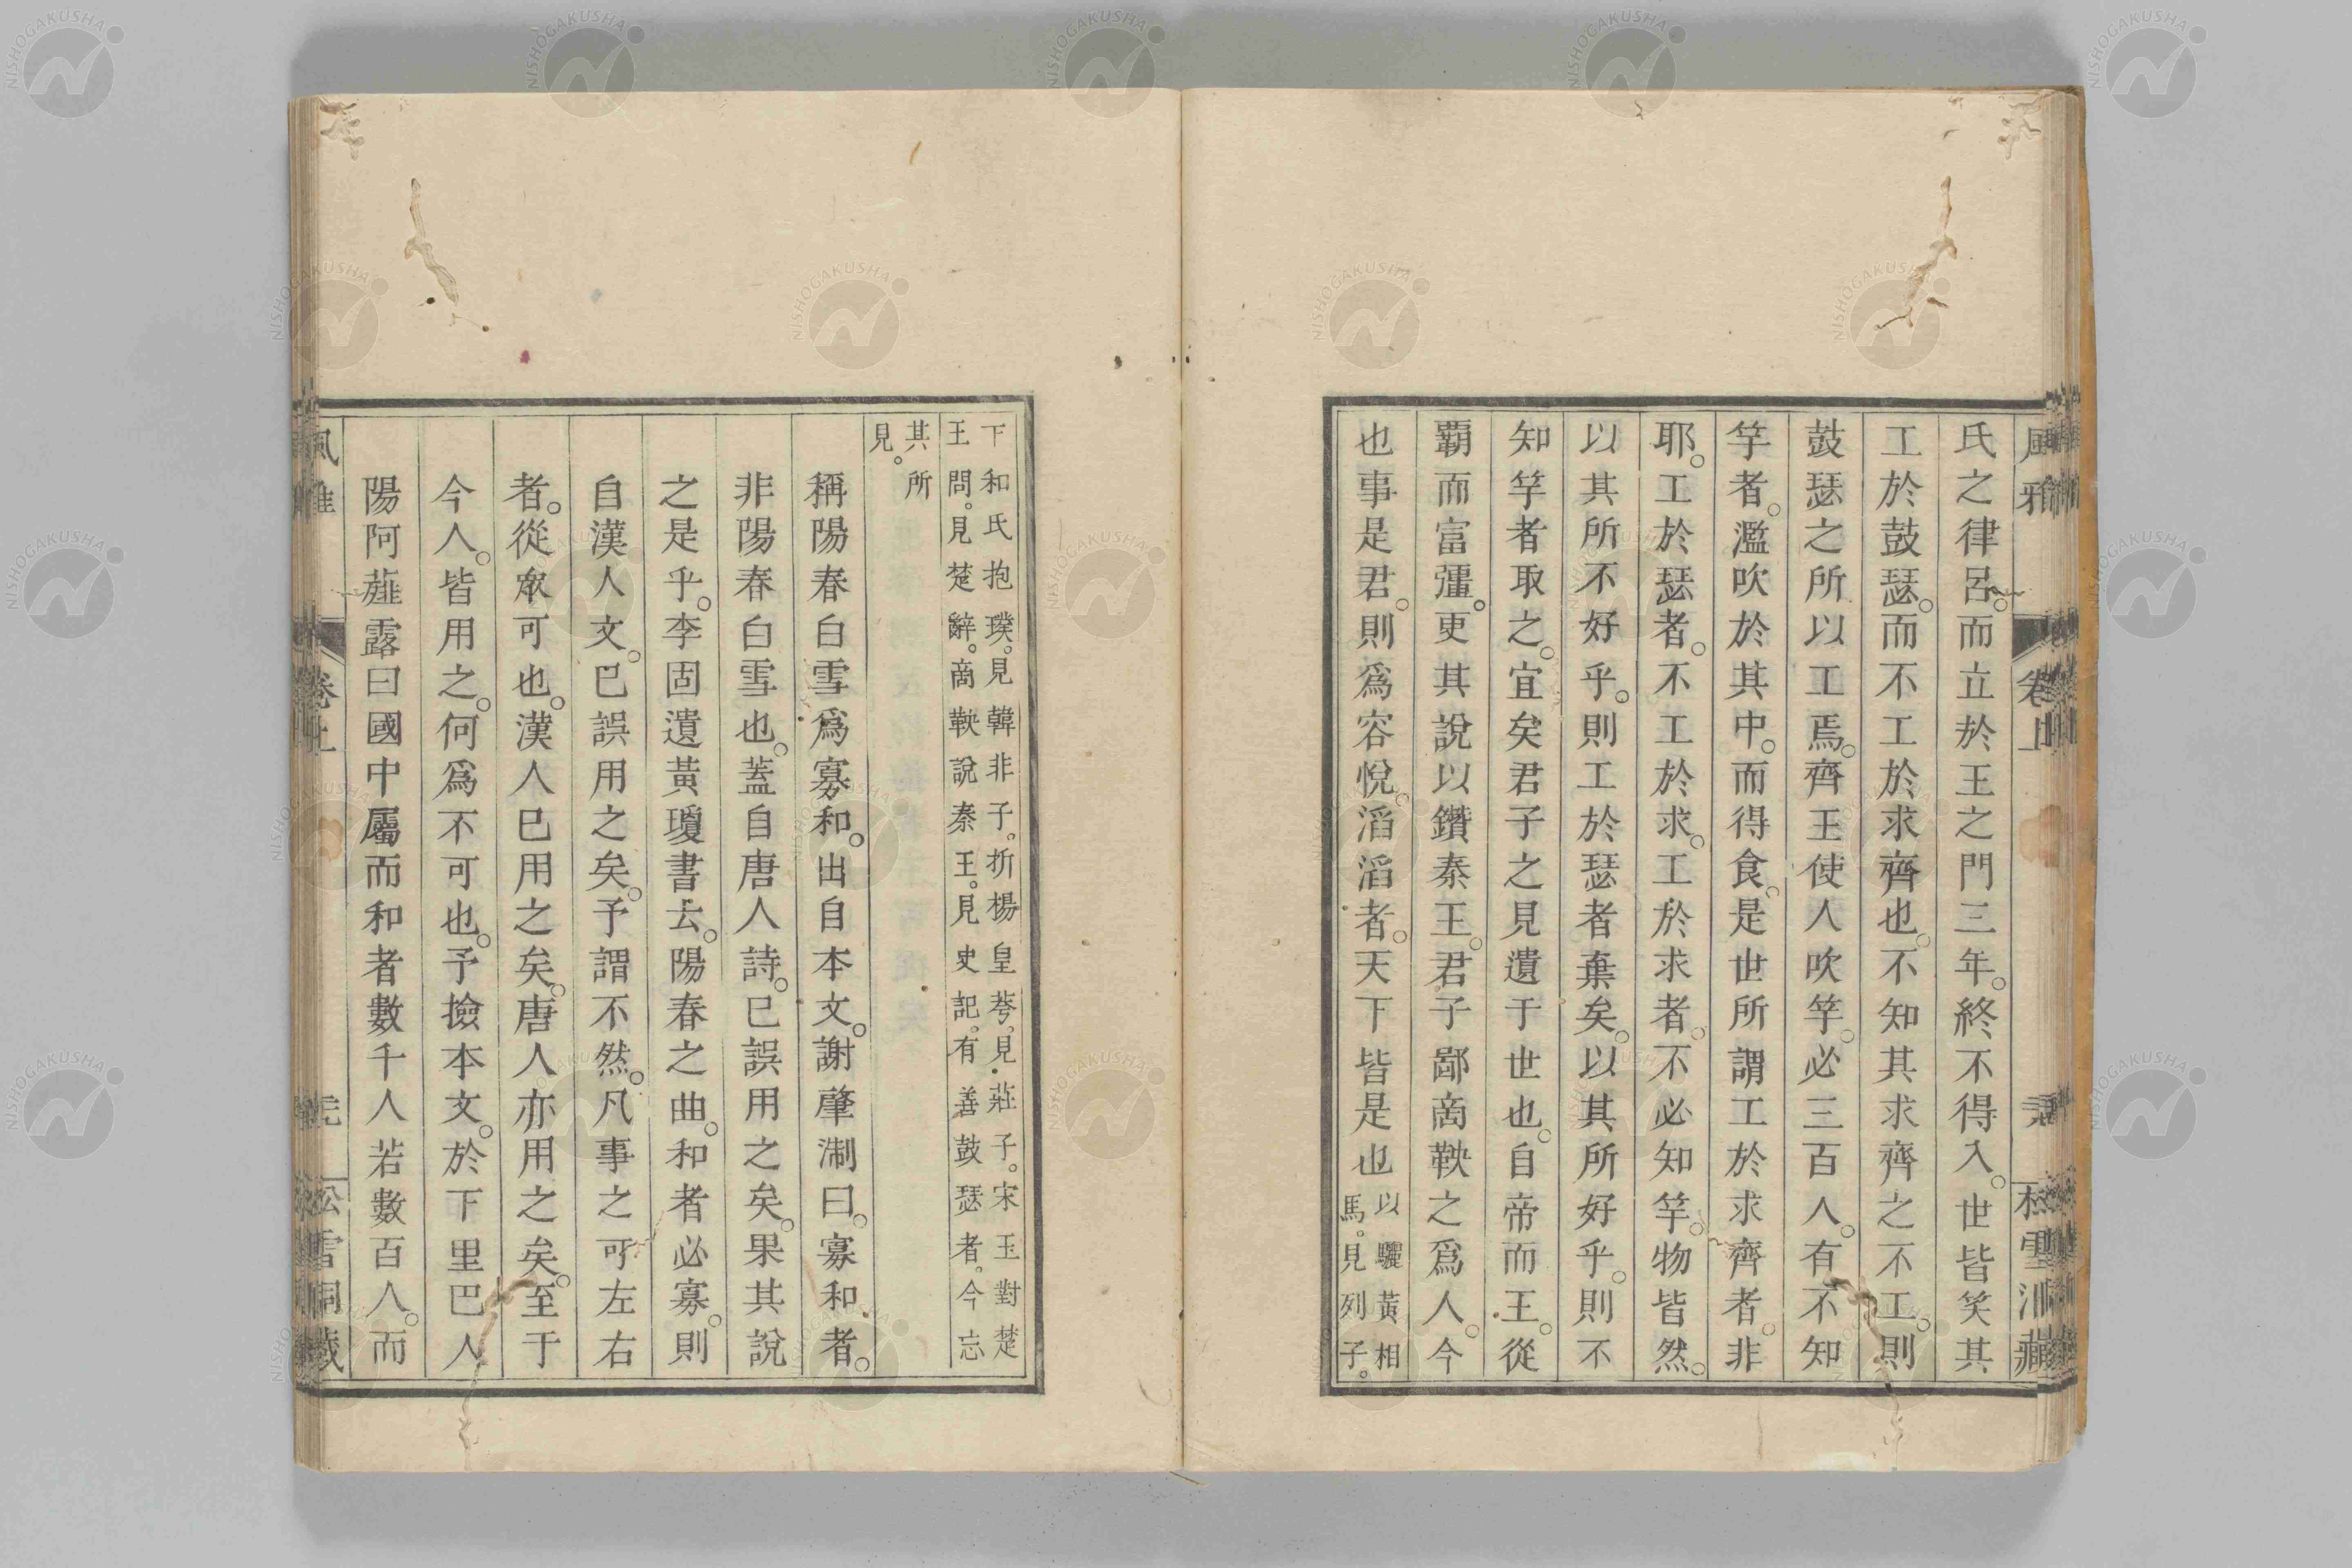 氏之律呂。而立於王之門三年。終不得入。世皆笑其
工於鼓瑟。而不工於求齊也。不知其求齊之不工。則
鼓瑟之所以工焉。齊王使人吹竽。必三百人。有不知
竽者。濫吹於其中。而得食。是世所謂工於求齊者。非
耶。工於瑟者。不工於求。工於求者。不必知竽。物皆然。
以其所不好乎。則工於瑟者棄矣。以其所好乎。則不
知竽者取之。宜矣君子之見遺于世也。自帝而王。從
覇而富彊。更其說以鑽秦王。君子鄙商鞅之爲人。今
也事是君。則爲容悅。滔滔者。天下皆是也
以驪黃相
馬。見列子。
卞和氏抱璞。見韓非子。折楊皇荂。見莊子。宋玉對楚
王問。見楚辭。商鞅說秦王。見史記。有善鼓瑟者。今忘
其所
見。
稱陽春白雪爲寡和。出自本文。謝肇淛曰。寡和者。
非陽春白雪也。蓋自唐人詩。已誤用之矣。果其說
之是乎。李固遺黃瓊書云。陽春之曲。和者必寡。則
自漢人文。已誤用之矣。予謂不然。凡事之可左右
者。從衆可也。漢人已用之矣。唐人亦用之矣。至于
今人。皆用之。何爲不可也。予撿本文。於下里巴人
陽阿薤露曰國中屬而和者數千人若數百人。而
NISHOGAKUSHA